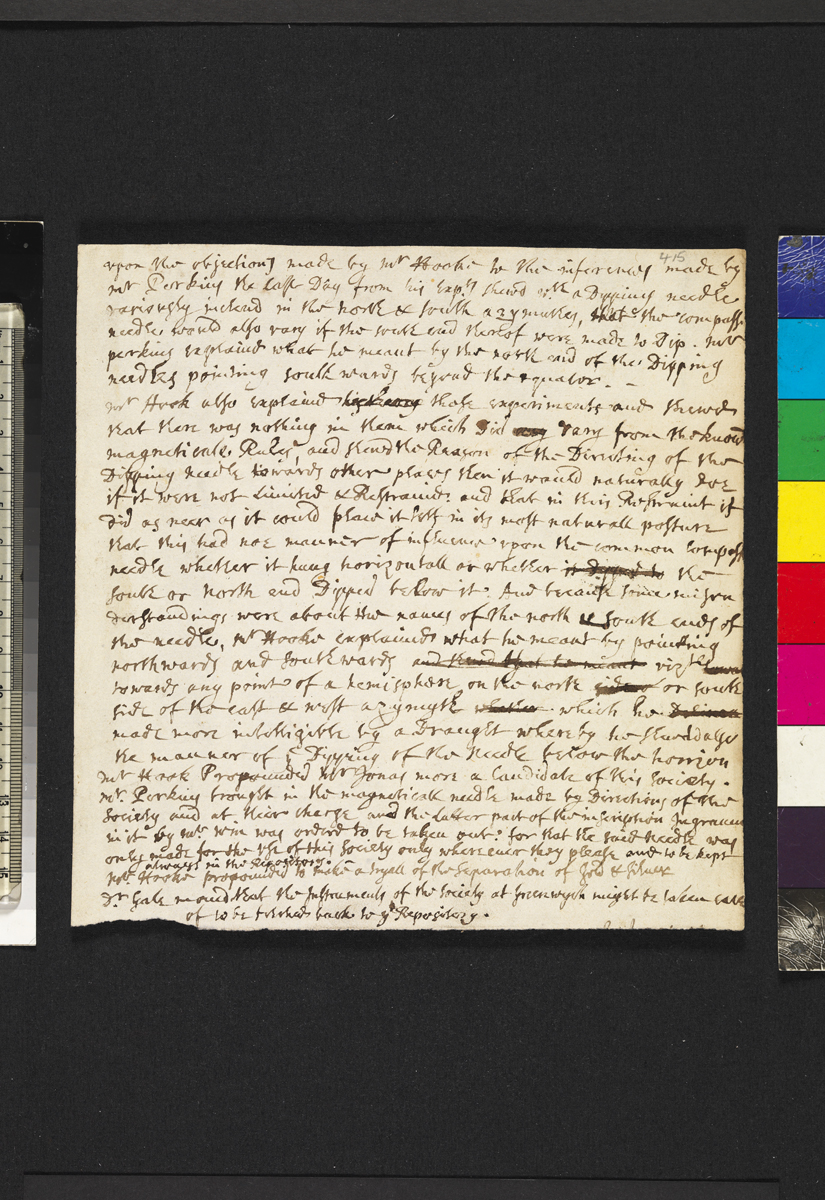 415
upon the objections made by mr Hooke to the inferences made by
mr Perkins the last Day from his Exp.ts shewd wth a Dipping needle
variously inclend in the north & south azymuthes, that the compasse
needle would also vary if the south end thereof were made to Dip. mr
perkins explaind what he meant by the north end of the Dipping
needles pointing southwards beyond the equator. –
mr Hook also explaind those experiments and shewd
that there was nothing in them which Did any vary from the know
magneticall Rules, and shewd the Reason of the Directing of the
Dipping needle towards other places then it would naturally doe
if it were not Limited & Restraind. and that in this Restraint it
Did as near as it could place it self in its most naturall posture
that this had noe manner of influence upon the common compasse
needle whether it hung horizontall or whether it Dipped to the
south or north end Dipped below it. And because some misun
derstandings were about the names of the north & south ends of
the needle, mr Hooke explaind what he meant by pointing
northwards and southwards and shewd that he meant viz.t
towards any point of a hemisphere on the north side of or south
side of the east & west azymuth which he
made more intelligible by a Draught whereby he shewd also
the manner of ye Dipping of the needle below the horizon
mr Hook Propounded mr Jonas more a Candidate of this Society.
mr. Perkins brought in the magneticall needle made by Directions of the
Society and at their charge and the latter part of the inscription Ingraven
in it by mr. was orderd to be taken out. for that the said needle was
only made for the use of this Society only wheresoever they please and to be kept
always in the Repository.
mr. Hooke propounded to make a tryall of the Separation of gold & silver
Dr Gale moud that the Instruments of the Society at Greenwych might be taken care
of to be fetched back to ye Repository.